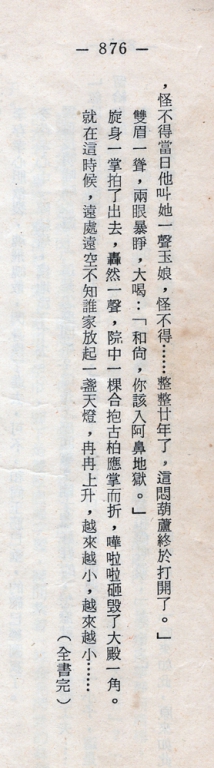 — 876 —
，怪不得當日他叫她一聲玉娘，怪不得……整整廿年了，這悶葫蘆終於打開了。」
雙眉一聳，兩眼暴睜，大喝：「和尙，你該入阿鼻地獄。」
旋身一掌拍了出去，轟然一聲，院中一棵合抱古柏應掌而折，嘩啦啦砸毀了大殿一角。
就在這時候，遠處遠空不知誰家放起一盞天燈，冉冉上升，越來越小，越來越小……
（全書完）